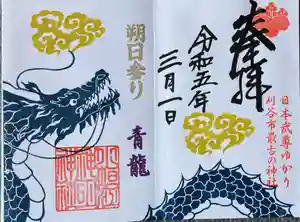 奉拝
令和五年
三月一日
日本武尊ゆかり
刈谷市最古の神社
朔日参り
青龍